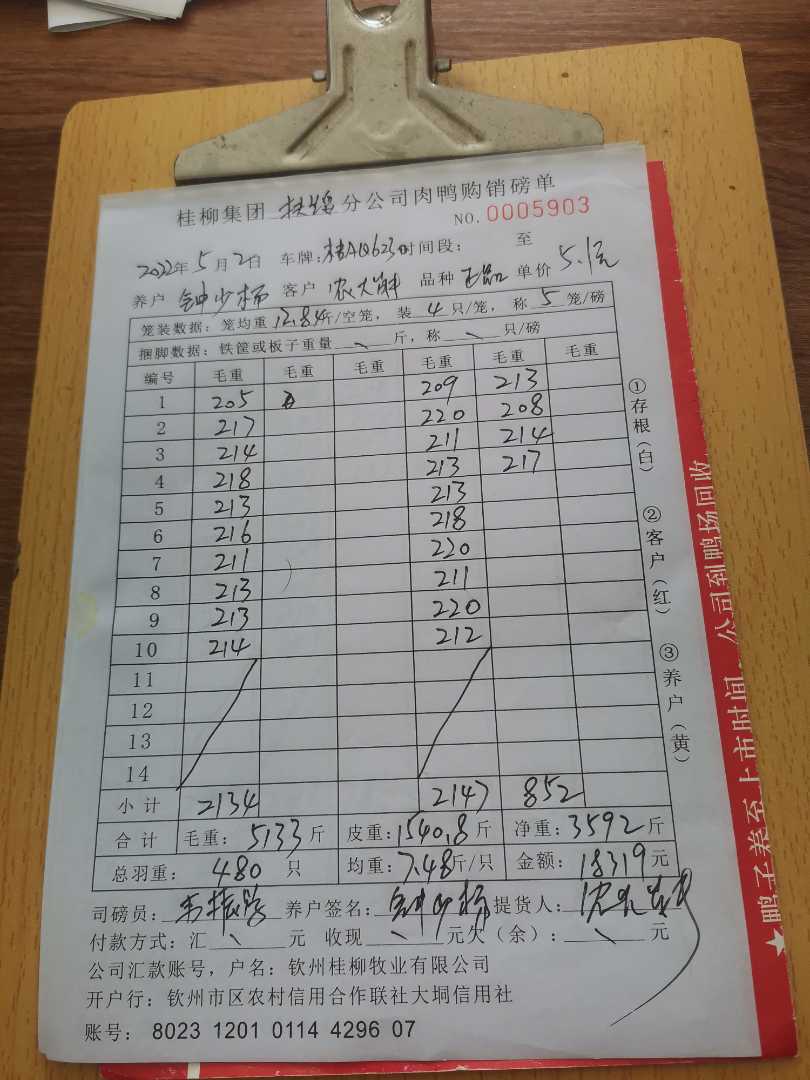 桂柳集团 扶绥 分公司肉鸭购销磅单
NO. 0005903
2022年 5月 2日 车牌: 时间段: 至
养户 钟少杨 客户 农大 品种 正品 单价 5.1元
笼装数据: 笼均重 12.84斤/空笼, 装 4 只/笼, 称 5 笼/磅
捆脚数据: 铁筐或板子重量 斤, 称 只/磅
编号 毛重 毛重 毛重 毛重 毛重 毛重
1 205 209 213
2 217 220 208
3 214 211 214
4 218 213 217
5 213 213
6 216 218
7 211 220
8 213 211
9 213 220
10 214 212
11
12
13
14
小计 2134 2147 852
合计 毛重: 5133斤 皮重: 1540.8斤 净重: 3592斤
总羽重: 480 只 均重: 7.48斤/只 金额: 18319元
司磅员: 养户签名: 钟少杨 提货人:
付款方式: 汇 元 收现 元欠(余): 元
公司汇款账号, 户名: 钦州桂柳牧业有限公司
开户行: 钦州市区农村信用合作联社大垌信用社
账号: 8023 1201 0114 4296 07
①存根(白) ②客户(红) ③养户(黄)
★鸭子养至上市时间,公司到鸭场回收